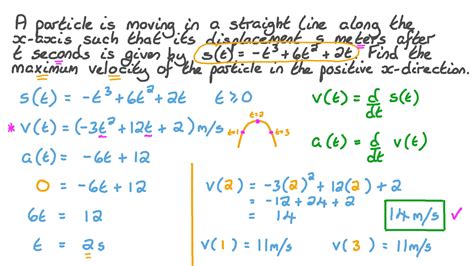 A particle is moving in a straight line along the
x-axis such that its displacement s meters after
t seconds is given by s(t) = -t³+6t²+2t. Find the
maximum velocity of the particle in the positive x-direction.
s(t) = -t³+6t²+2t t ≥ 0
* v(t) = (-3t²+12t + 2) m/s
a(t) = -6t + 12
0 = -6t + 12
6t = 12
t = 2s
t=2
t=1 t=3
v(t) = d/dt s(t)
a(t) = d/dt v(t)
v(2) = -3(2)² + 12(2) + 2
= -12 + 24 + 2
= 14
14 m/s ✓
v(1) = 11m/s v(3) = 11m/s